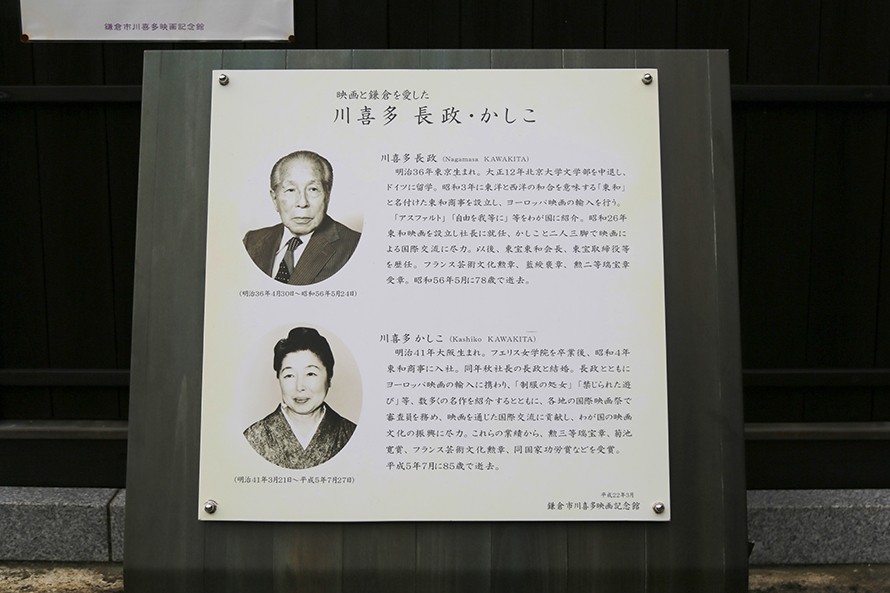 鎌倉市川喜多映画記念館
映画と鎌倉を愛した
川喜多 長政・かしこ
川喜多長政 (Nagamasa KAWAKITA)
明治36年東京生まれ。大正12年北京大学文学部を中退し、
ドイツに留学。昭和3年に東洋と西洋の和合を意味する「東和」
と名付けた東和商事を設立し、ヨーロッパ映画の輸入を行う。
「アスファルト」「自由を我等に」等をわが国に紹介。昭和26年
東和映画を設立し社長に就任、かしこと二人三脚で映画に
よる国際交流に尽力。以後、東宝東和会長、東宝取締役等
を歴任。フランス芸術文化勲章、藍綬褒章、勲二等瑞宝章
受章。昭和56年5月に78歳で逝去。
(明治36年4月30日~昭和56年5月24日)
川喜多かしこ (Kashiko KAWAKITA)
明治41年大阪生まれ。フェリス女学院を卒業後、昭和4年
東和商事に入社。同年秋社長の長政と結婚。長政とともに
ヨーロッパ映画の輸入に携わり、「制服の処女」「禁じられた遊
び」等、数多くの名作を紹介するとともに、各地の国際映画祭で
審査員を務め、映画を通じた国際交流に貢献し、わが国の映画
文化の振興に尽力。これらの業績から、勲三等瑞宝章、菊池
寛賞、フランス芸術文化勲章、同国家功労賞などを受賞。
平成5年7月に85歳で逝去。
(明治41年3月21日~平成5年7月27日)
平成22年3月
鎌倉市川喜多映画記念館